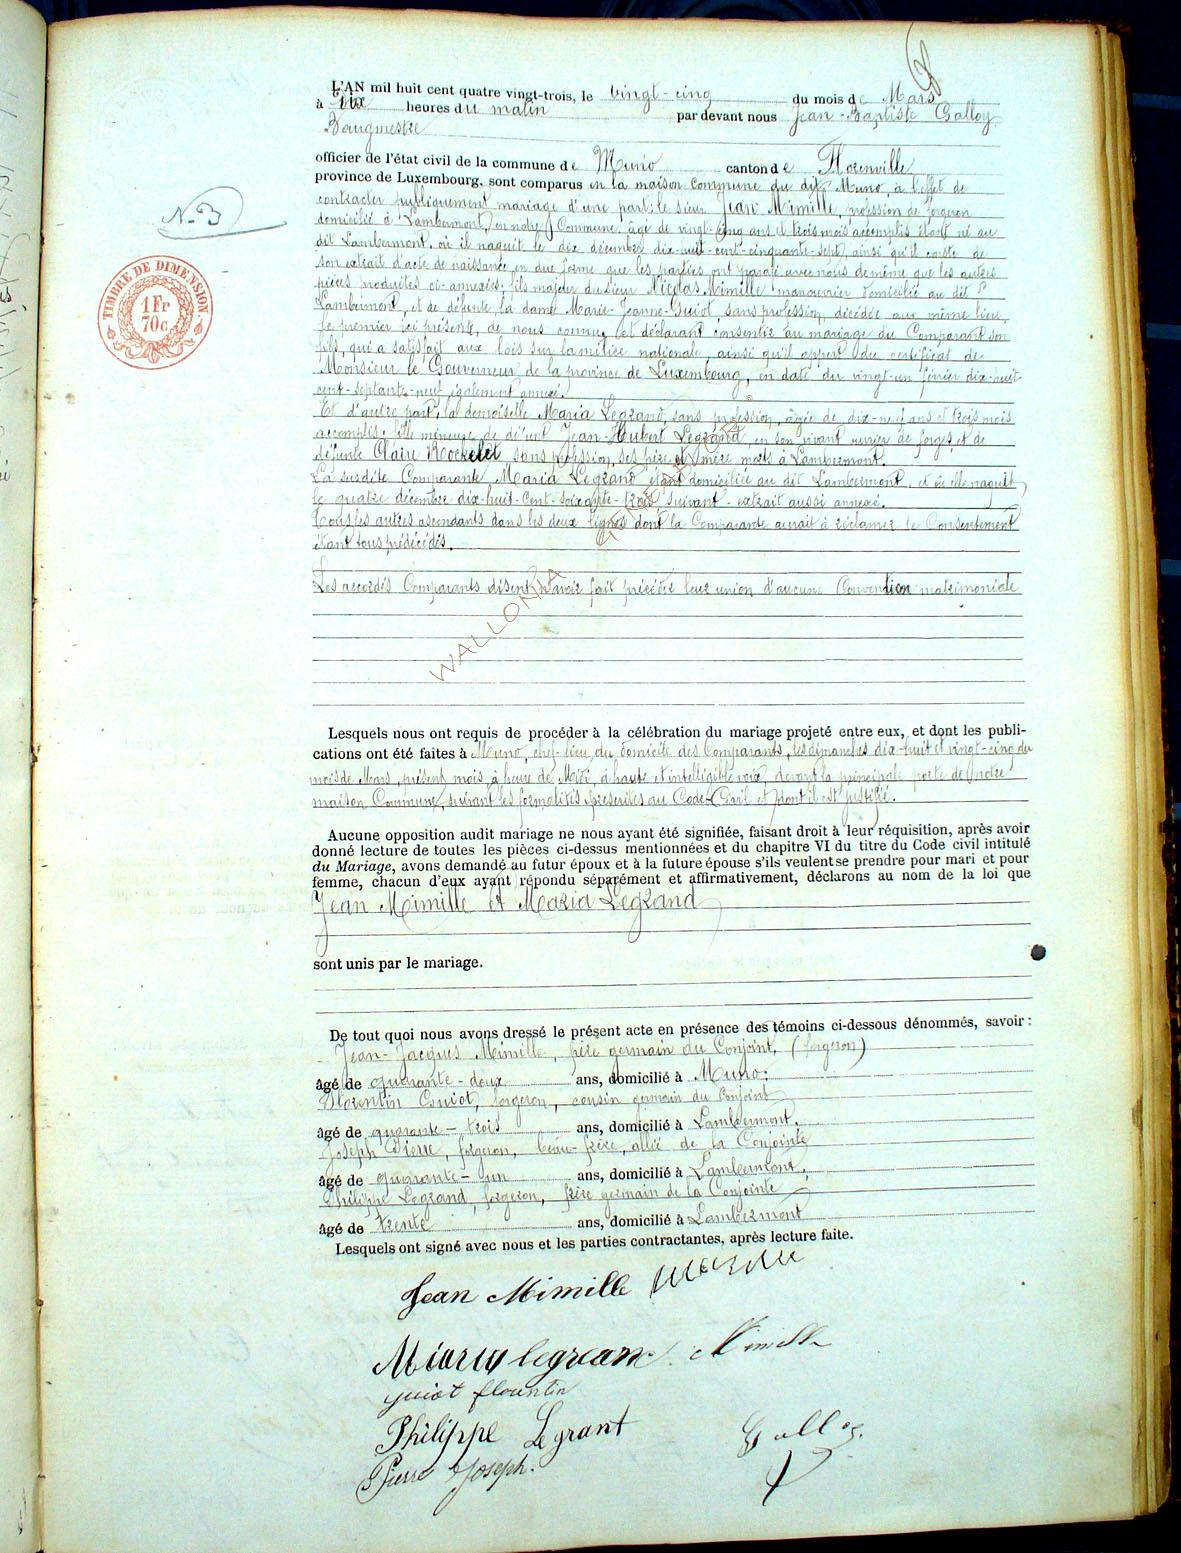 L'AN mil huit cent quatre vingt-trois, le vingt-cinq du mois de Mars
à dix heures du matin par devant nous Jean-Baptiste Galloy
Bourgmestre
officier de l'état civil de la commune de Muno canton de Florenville
province de Luxembourg, sont comparus en la maison commune du dit Muno, à l'effet de
contracter publiquement mariage d'une part: le sieur Jean Mimille, profession de forgeron
domicilié à Lambermont, en notre Commune, âgé de vingt-cinq ans et trois mois accomplis étant né au
dit Lambermont, où il naquit le dix décembre dix-huit-cent-cinquante-sept, ainsi qu'il conste de
son extrait d'acte de naissance en due forme que les parties ont parafé avec nous de même que les autres
pièces produites ci-annexées; fils majeur du sieur Nicolas Mimille manouvrier domicilié au dit
Lambermont, et de défunte la dame Marie-Jeanne Guiot sans profession, décédée au même lieu,
le premier ici présent, de nous connu, et déclarant consentir au mariage du Comparant son
fils, qui a satisfait aux lois sur la milice nationale, ainsi qu'il appert du certificat de
Monsieur le Gouverneur de la province de Luxembourg, en date du vingt-un février dix-huit
cent-septante-neuf également annexé.
Et d'autre part, la demoiselle Maria Legrand, sans profession, âgée de dix-neuf ans et trois mois
accomplis, fille mineure de défunt Jean-Hubert Legrand en son vivant ouvrier de forges et de
défunte Claire Rockelet sans profession, ses père et mère morts à Lambermont.
La susdite Comparante Maria Legrand étant domiciliée au dit Lambermont, et où elle naquit
le quatre décembre dix-huit-cent-soixante-trois suivant extrait aussi annexé.
Tous les autres ascendants dans les deux lignes dont la Comparante aurait à réclamer le Consentement
étant tous prédécédés.
Les accordés Comparants disent n'avoir fait précéder leur union d'aucune Convention matrimoniale
N. 3
TIMBRE DE DIMENSION
1 Fr
70 c
WALLONIA
Lesquels nous ont requis de procéder à la célébration du mariage projeté entre eux, et dont les publi-
cations ont été faites à Muno, chef-lieu du domicile des Comparants, les dimanches dix-huit et vingt-cinq du
mois de Mars, présent mois, à heure de Midi, à haute et intelligible voix, devant la principale porte de notre
maison Commune, suivant les formalités prescrites au Code Civil et dont il est justifié.
Aucune opposition audit mariage ne nous ayant été signifiée, faisant droit à leur réquisition, après avoir
donné lecture de toutes les pièces ci-dessus mentionnées et du chapitre VI du titre du Code civil intitulé
du Mariage, avons demandé au futur époux et à la future épouse s'ils veulent se prendre pour mari et pour
femme, chacun d'eux ayant répondu séparément et affirmativement, déclarons au nom de la loi que
Jean Mimille et Maria Legrand
sont unis par le mariage.
De tout quoi nous avons dressé le présent acte en présence des témoins ci-dessous dénommés, savoir :
Jean-Jacques Mimille, frère germain du Conjoint, (forgeron)
âgé de quarante-deux ans, domicilié à Muno;
Florentin Guiot, forgeron, cousin germain du Conjoint
âgé de quarante-trois ans, domicilié à Lambermont.
Joseph Pierre, forgeron, beau-frère, allié de la Conjointe
âgé de quarante-un ans, domicilié à Lambermont,
Philippe Legrand, forgeron, frère germain de la Conjointe
âgé de trente ans, domicilié à Lambermont
Lesquels ont signé avec nous et les parties contractantes, après lecture faite.
Jean Mimille
Mimille
guiot flourntin
Philippe Legrant
Pierre Joseph.